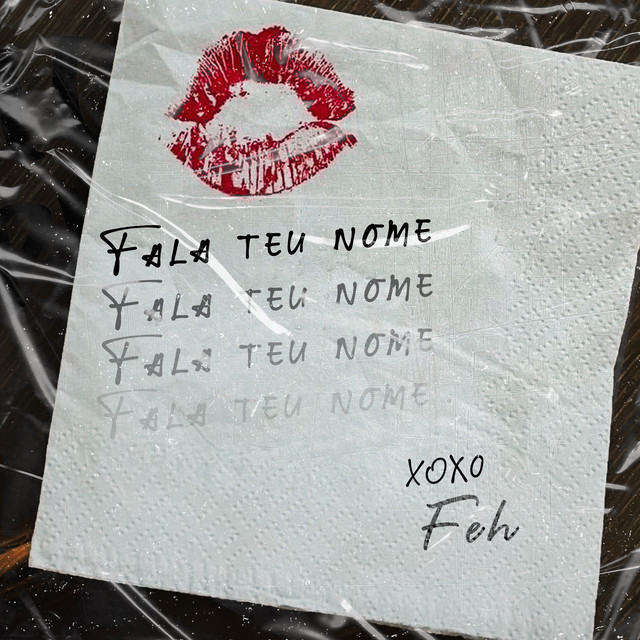 FALA TEU NOME
FALA TEU NOME
FALA TEU NOME
FALA TEU NOME
XOXO
Feh